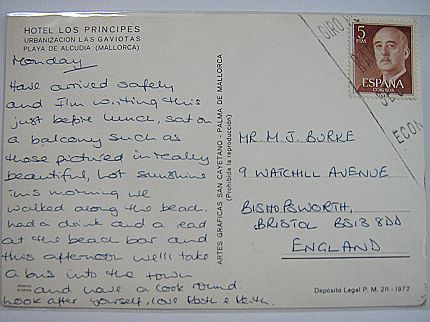 HOTEL LOS PRINCIPES
URBANIZACION LAS GAVIOTAS
PLAYA DE ALCUDIA (MALLORCA)
Monday
Have arrived safely
and I'm writing this
just before lunch, sat on
a balcony such as
those pictured in really
beautiful, hot sunshine
this morning we
walked along the beach.
had a drink and a read
at the beach bar and
this afternoon we'll take
a bus into the town
and have a look round.
Look after yourself, love & Keith.
ARTES GRAFICAS SAN CAYETANO - PALMA DE MALLORCA
(Prohibida la reproducción)
5
PTAS
ESPAÑA
CORREOS
GIRO
ECON
MR. M. J. BURKE
9 WATCHILL AVENUE
BISHOPSWORTH,
BRISTOL BS13 8DD
ENGLAND
Depósito Legal P. M. 211 - 1972